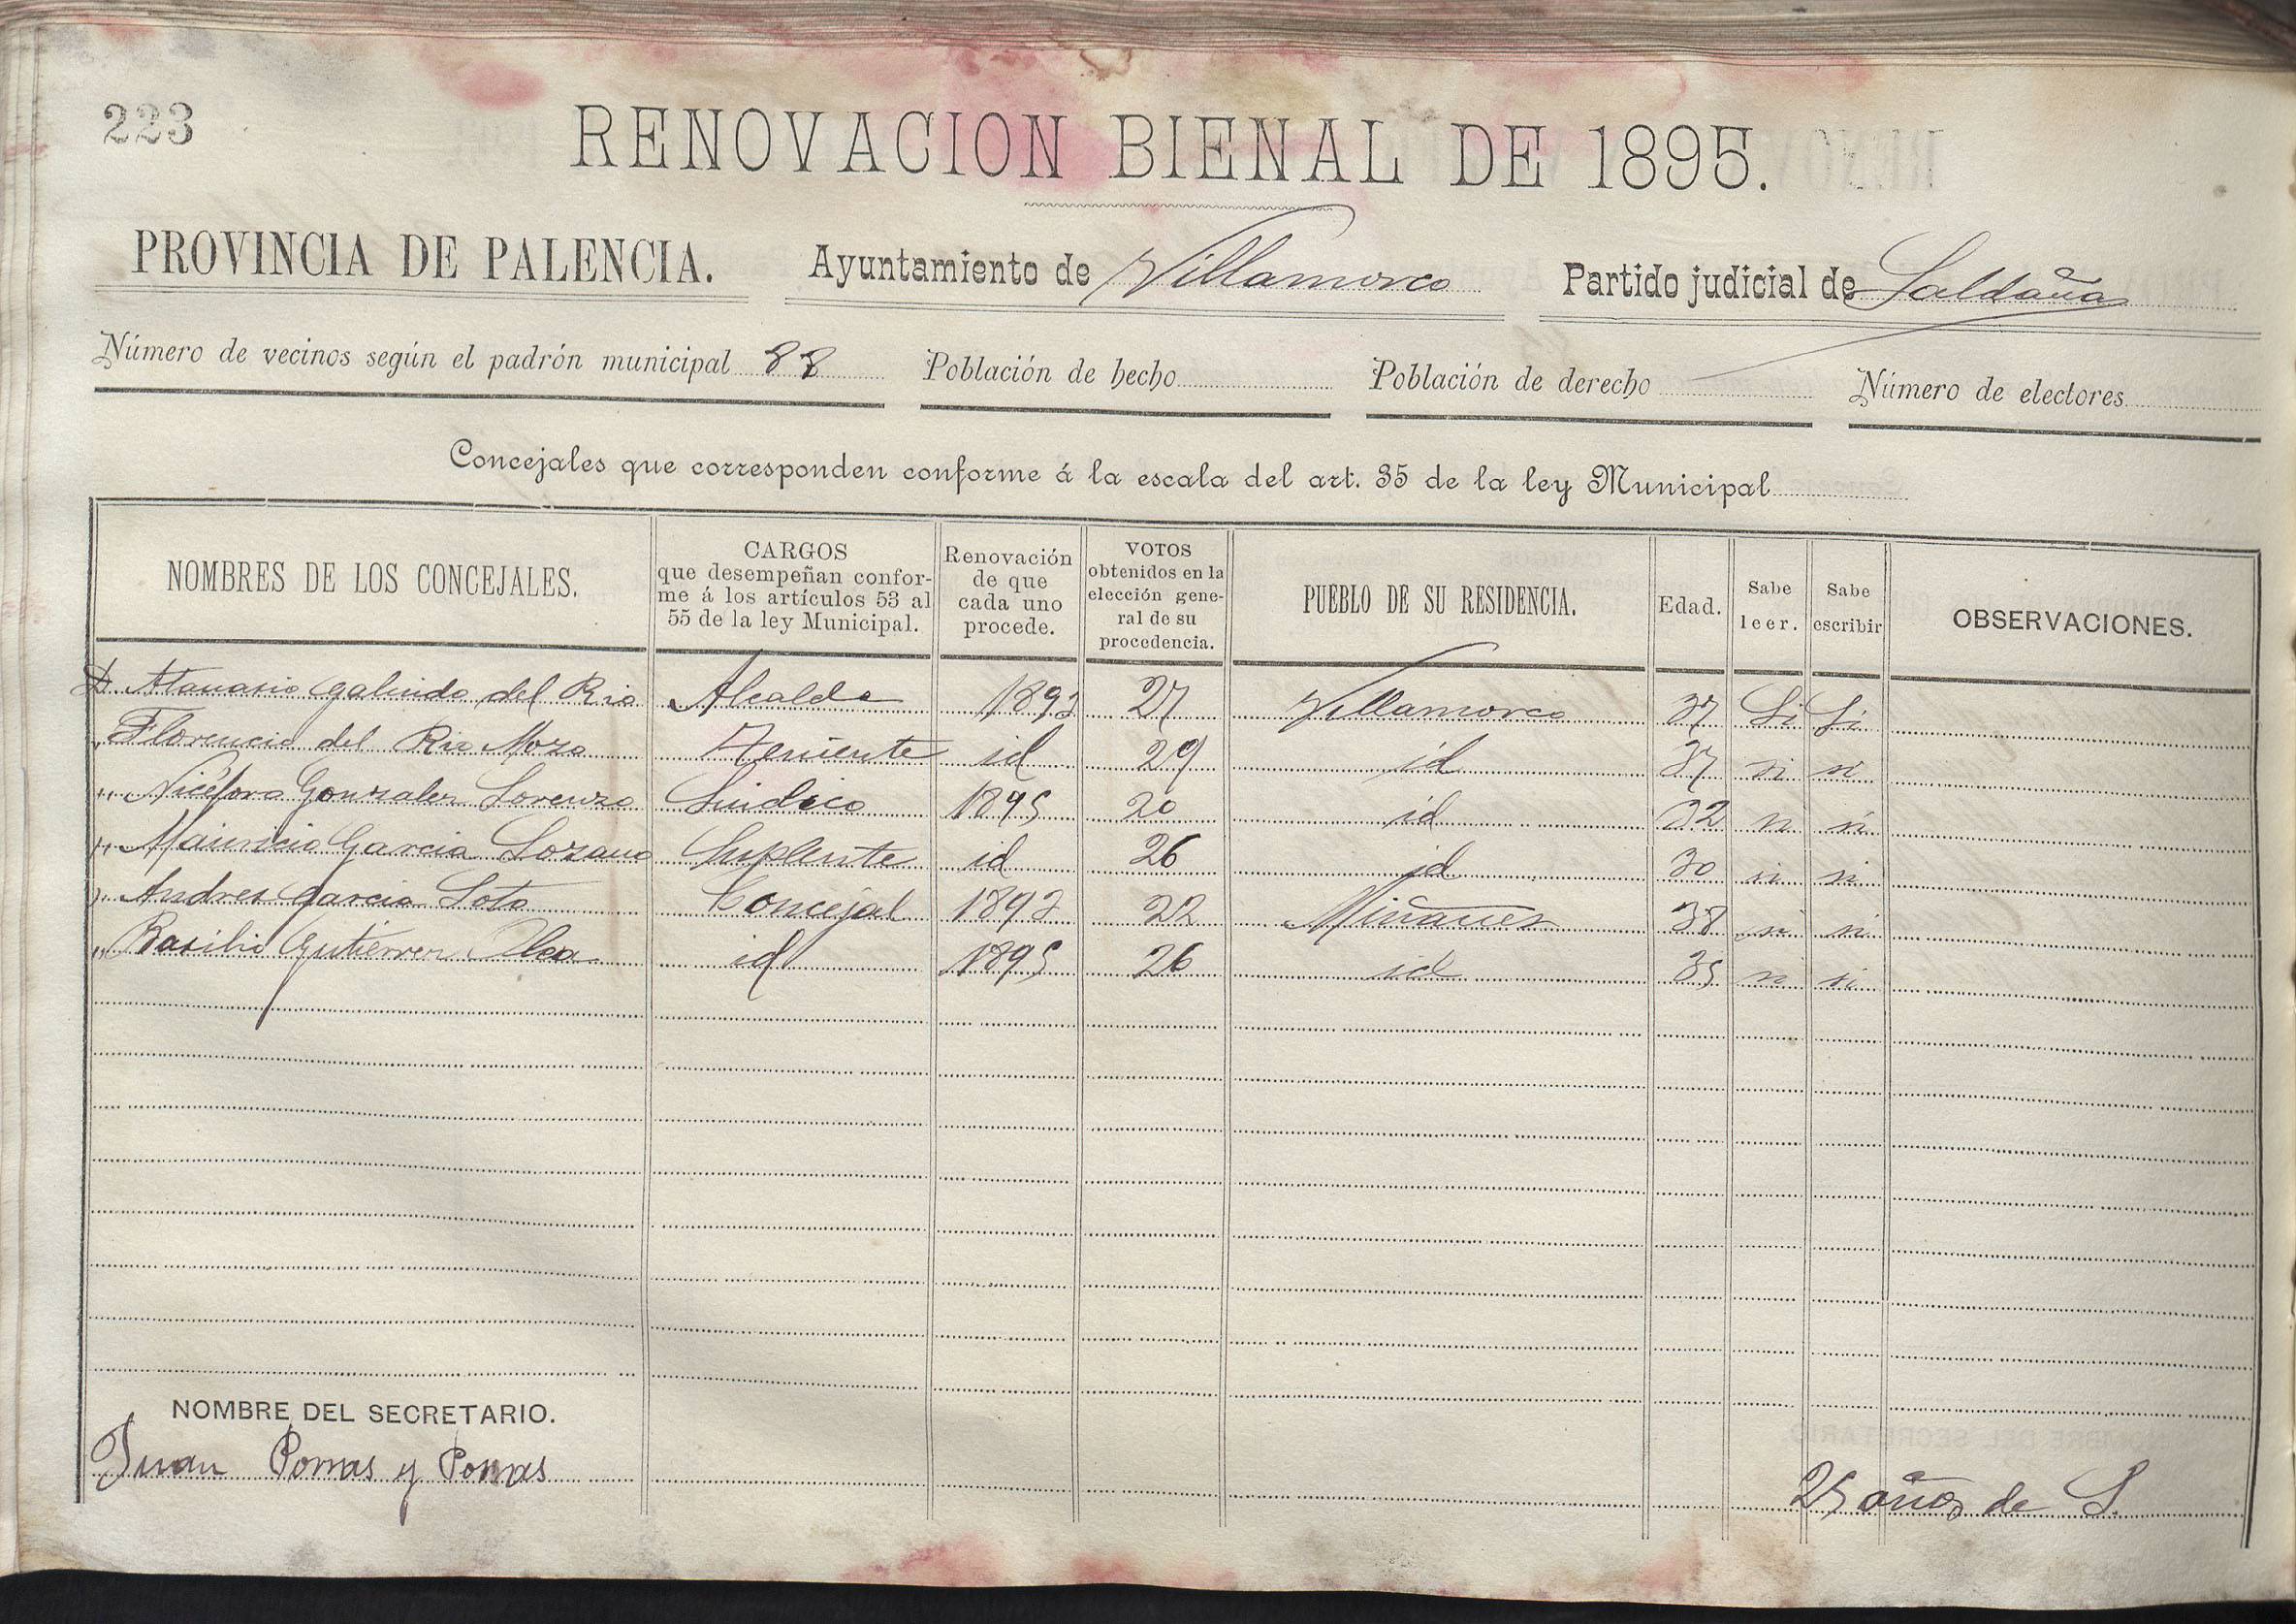 223
RENOVACION BIENAL DE 1895.
PROVINCIA DE PALENCIA. Ayuntamiento de Villamorco Partido judicial de Saldaña
Número de vecinos según el padrón municipal 88 Población de hecho Población de derecho Número de electores
Concejales que corresponden conforme á la escala del art. 35 de la ley Municipal
NOMBRES DE LOS CONCEJALES. CARGOS que desempeñan confor- me á los artículos 53 al 55 de la ley Municipal. Renovación de que cada uno procede. VOTOS obtenidos en la elección gene- ral de su procedencia. PUEBLO DE SU RESIDENCIA. Edad. Sabe leer. Sabe escribir OBSERVACIONES.
D. Atanasio Galindo del Rio Alcalde 1893 27 Villamorco 37 Si Si
" Florencio del Rio Mozo Teniente id 29 id 37 si si
" Nicéforo Gonzalez Lorenzo Sindico 1895 20 id 32 si si
" Mauricio Garcia Lozano Suplente id 26 id 30 si si
" Andres Garcia Soto Concejal 1893 22 Miñanes 38 si si
" Basilio Gutierrez id 1895 26 id 35 si si
NOMBRE DEL SECRETARIO.
Juan Porras y Porras 25 años de S.